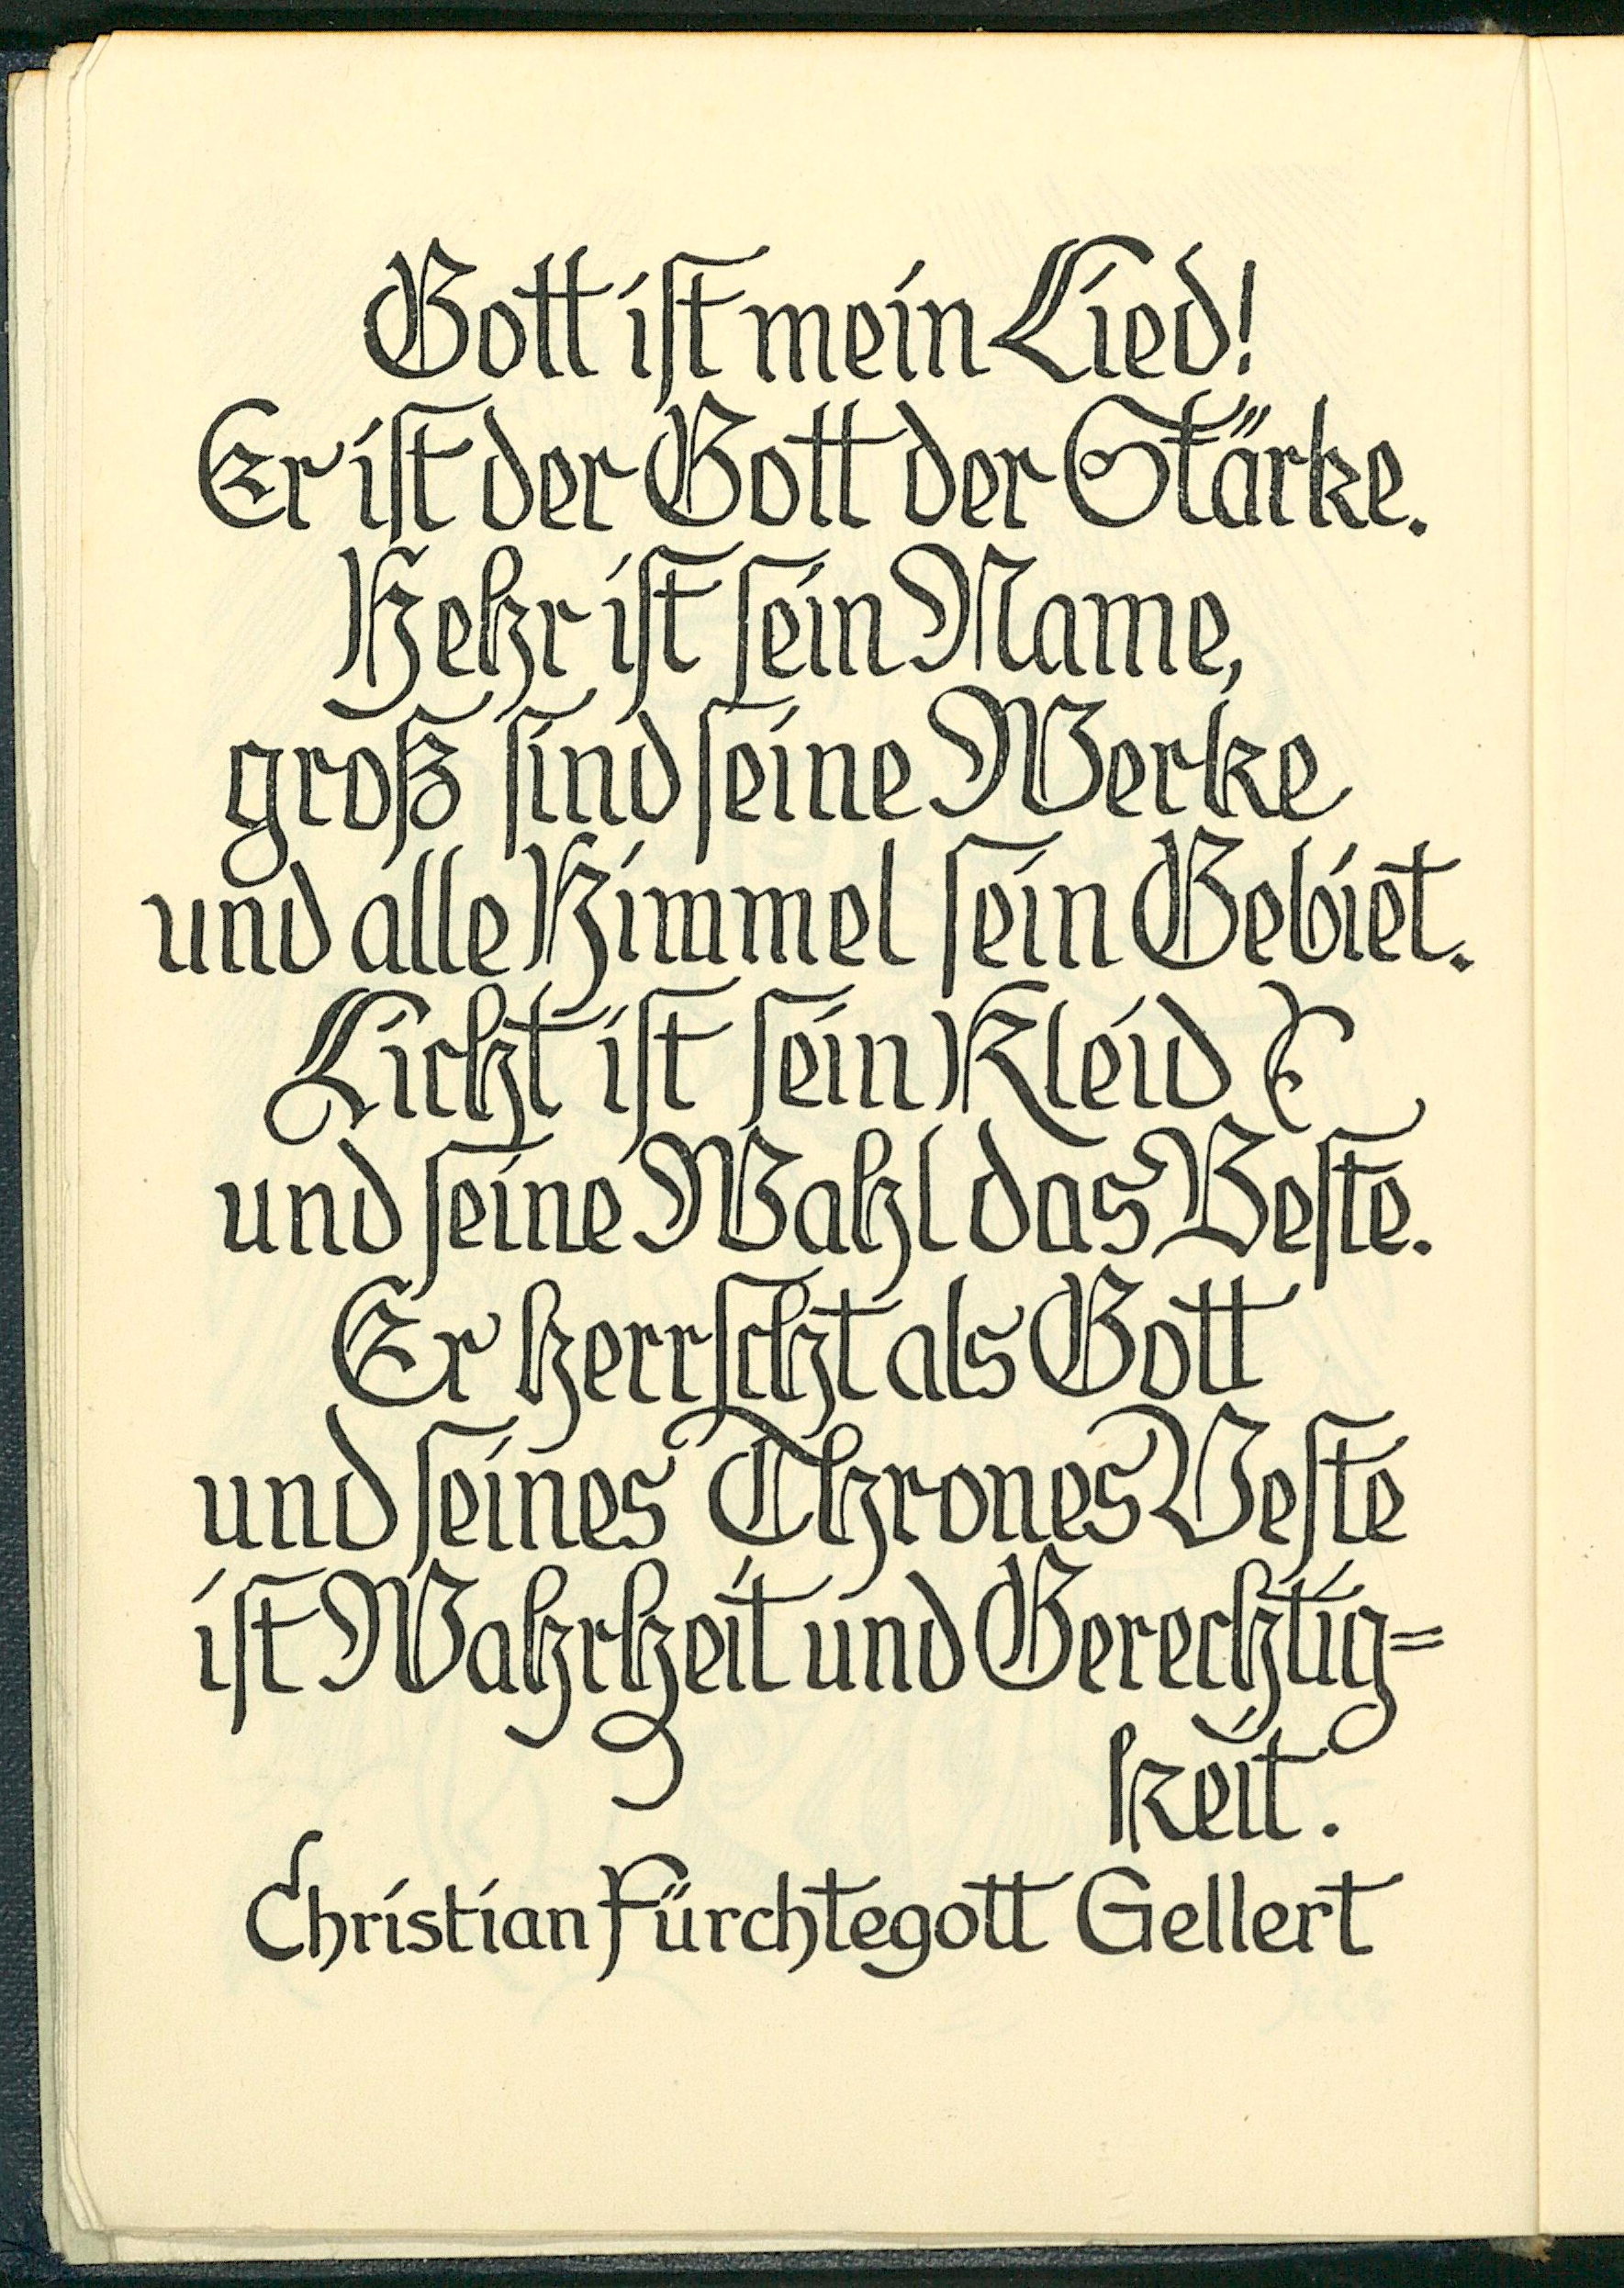 Gott ist mein Lied!
Er ist der Gott der Stärke.
Hehr ist sein Name,
groß sind seine Werke
und alle Himmel sein Gebiet.
Licht ist sein Kleid
und seine Wahl das Beste.
Er herrscht als Gott
und seines Thrones Veste
ist Wahrheit und Gerechtig=
keit.
Christian Fürchtegott Gellert